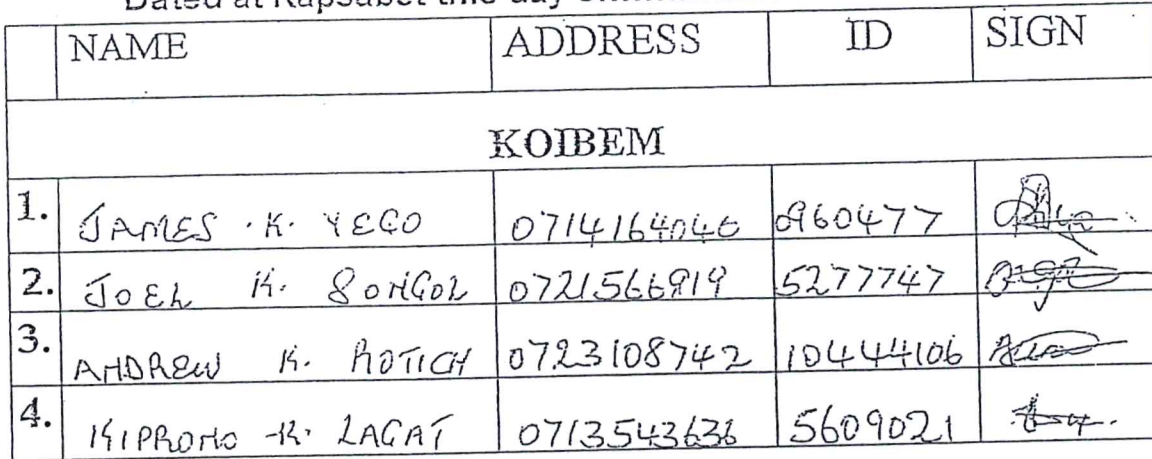 Dated at Kapsabet this day
NAME ADDRESS ID SIGN
KOIBEM
1. JAMES .K. YEGO 0714164040 0960477
2. JOEL K. SONGOL 0721566919 5277747
3. ANDREW K. ROTICH 0723108742 10444106
4. KIPRONO K. LAGAT 0713543636 5609021